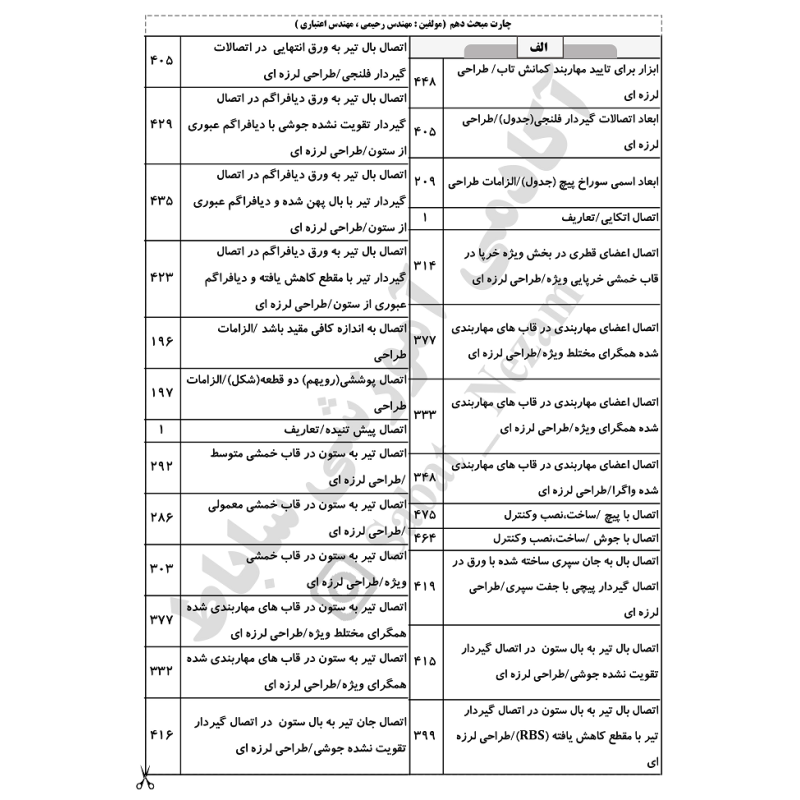 چارت مبحث دهم (مولفین : مهندس رحیمی ، مهندس اعتباری )
الف
ابزار برای تایید مهاربند کمانش تاب/ طراحی
لرزه ای
۴۴۸
ابعاد اتصالات گیردار فلنجی(جدول)/طراحی
لرزه ای
۴۰۵
ابعاد اسمی سوراخ پیچ (جدول)/الزامات طراحی
۲۰۹
اتصال اتکایی/تعاریف
۱
اتصال اعضای قطری در بخش ویژه خرپا در
قاب خمشی خرپایی ویژه/طراحی لرزه ای
۳۱۴
اتصال اعضای مهاربندی در قاب های مهاربندی
شده همگرای مختلط ویژه/طراحی لرزه ای
۳۷۷
اتصال اعضای مهاربندی در قاب های مهاربندی
شده همگرای ویژه/طراحی لرزه ای
۳۳۳
اتصال اعضای مهاربندی در قاب های مهاربندی
شده واگرا/طراحی لرزه ای
۳۴۸
اتصال با پیچ /ساخت،نصب وکنترل
۴۷۵
اتصال با جوش /ساخت،نصب وکنترل
۴۶۴
اتصال بال به جان سپری ساخته شده با ورق در
اتصال گیردار پیچی با جفت سپری/طراحی
لرزه ای
۴۱۹
اتصال بال تیر به بال ستون در اتصال گیردار
تقویت نشده جوشی/طراحی لرزه ای
۴۱۵
اتصال بال تیر به بال ستون در اتصال گیردار
تیر با مقطع کاهش یافته (RBS)/طراحی لرزه
ای
۳۹۹
اتصال بال تیر به ورق انتهایی در اتصالات
گیردار فلنجی/طراحی لرزه ای
۴۰۵
اتصال بال تیر به ورق دیافراگم در اتصال
گیردار تقویت نشده جوشی با دیافراگم عبوری
از ستون/طراحی لرزه ای
۴۲۹
اتصال بال تیر به ورق دیافراگم در اتصال
گیردار تیر با بال پهن شده و دیافراگم عبوری
از ستون/طراحی لرزه ای
۴۳۵
اتصال بال تیر به ورق دیافراگم در اتصال
گیردار تیر با مقطع کاهش یافته و دیافراگم
عبوری از ستون/طراحی لرزه ای
۴۲۳
اتصال به اندازه کافی مقید باشد /الزامات
طراحی
۱۹۶
اتصال پوششی(رویهم) دو قطعه(شکل)/الزامات
طراحی
۱۹۷
اتصال پیش تنیده/تعاریف
۱
اتصال تیر به ستون در قاب خمشی متوسط
/طراحی لرزه ای
۲۹۲
اتصال تیر به ستون در قاب خمشی معمولی
/طراحی لرزه ای
۲۸۶
اتصال تیر به ستون در قاب خمشی
ویژه/طراحی لرزه ای
۳۰۳
اتصال تیر به ستون در قاب های مهاربندی شده
همگرای مختلط ویژه/طراحی لرزه ای
۳۷۷
اتصال تیر به ستون در قاب های مهاربندی شده
همگرای ویژه/طراحی لرزه ای
۳۳۲
اتصال جان تیر به بال ستون در اتصال گیردار
تقویت نشده جوشی/طراحی لرزه ای
۴۱۶
آکادمی آموزشی ساباط
Sabat_Nezam